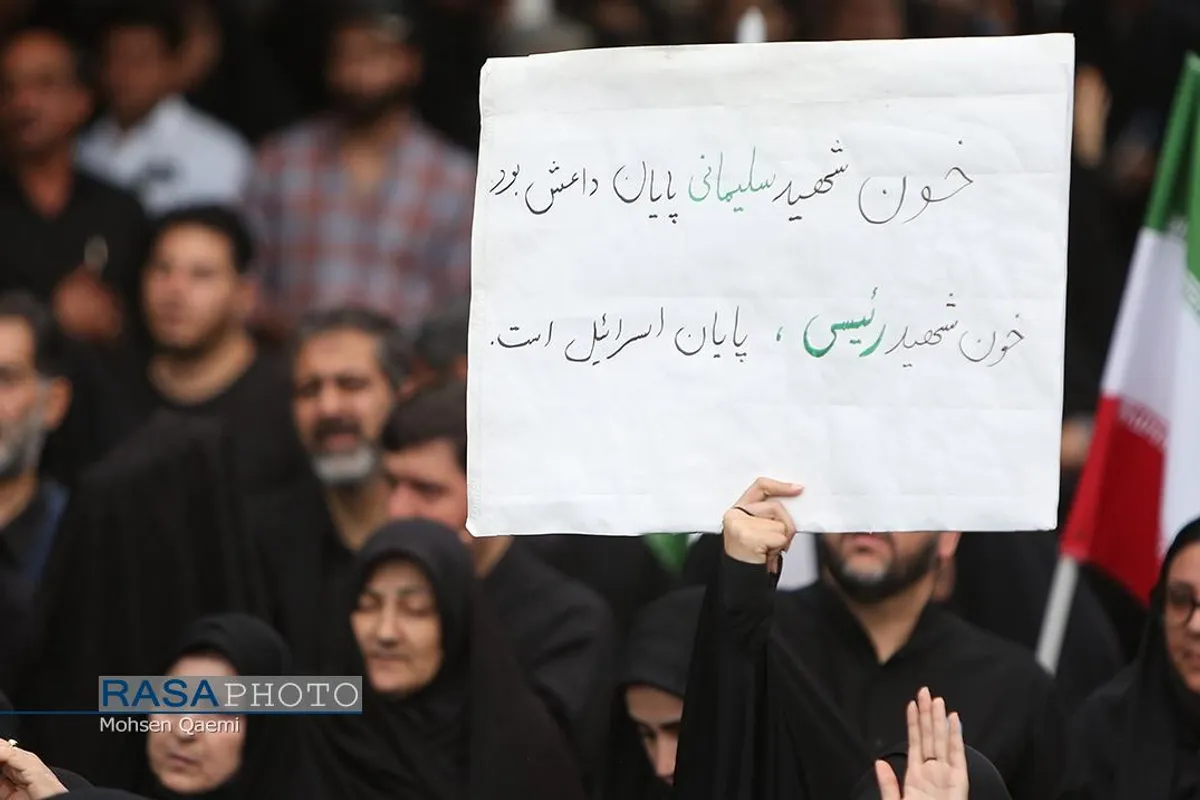 خون شهید سلیمانی پایان داعش بود
خون شهید رئیسی ، پایان اسرائیل است.
RASAPHOTO
Mohsen Qaemi